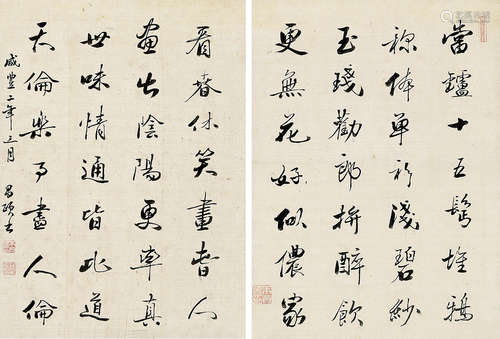 當壚十五髩堆鴉
稱体單衫淺碧紗
玉琖勸郎拚醉飲
更無花好似儂家
看春休笑畫春人
畫出陰陽更畢真
世味情通皆此道
天倫樂事盡人倫
咸豐二年三月